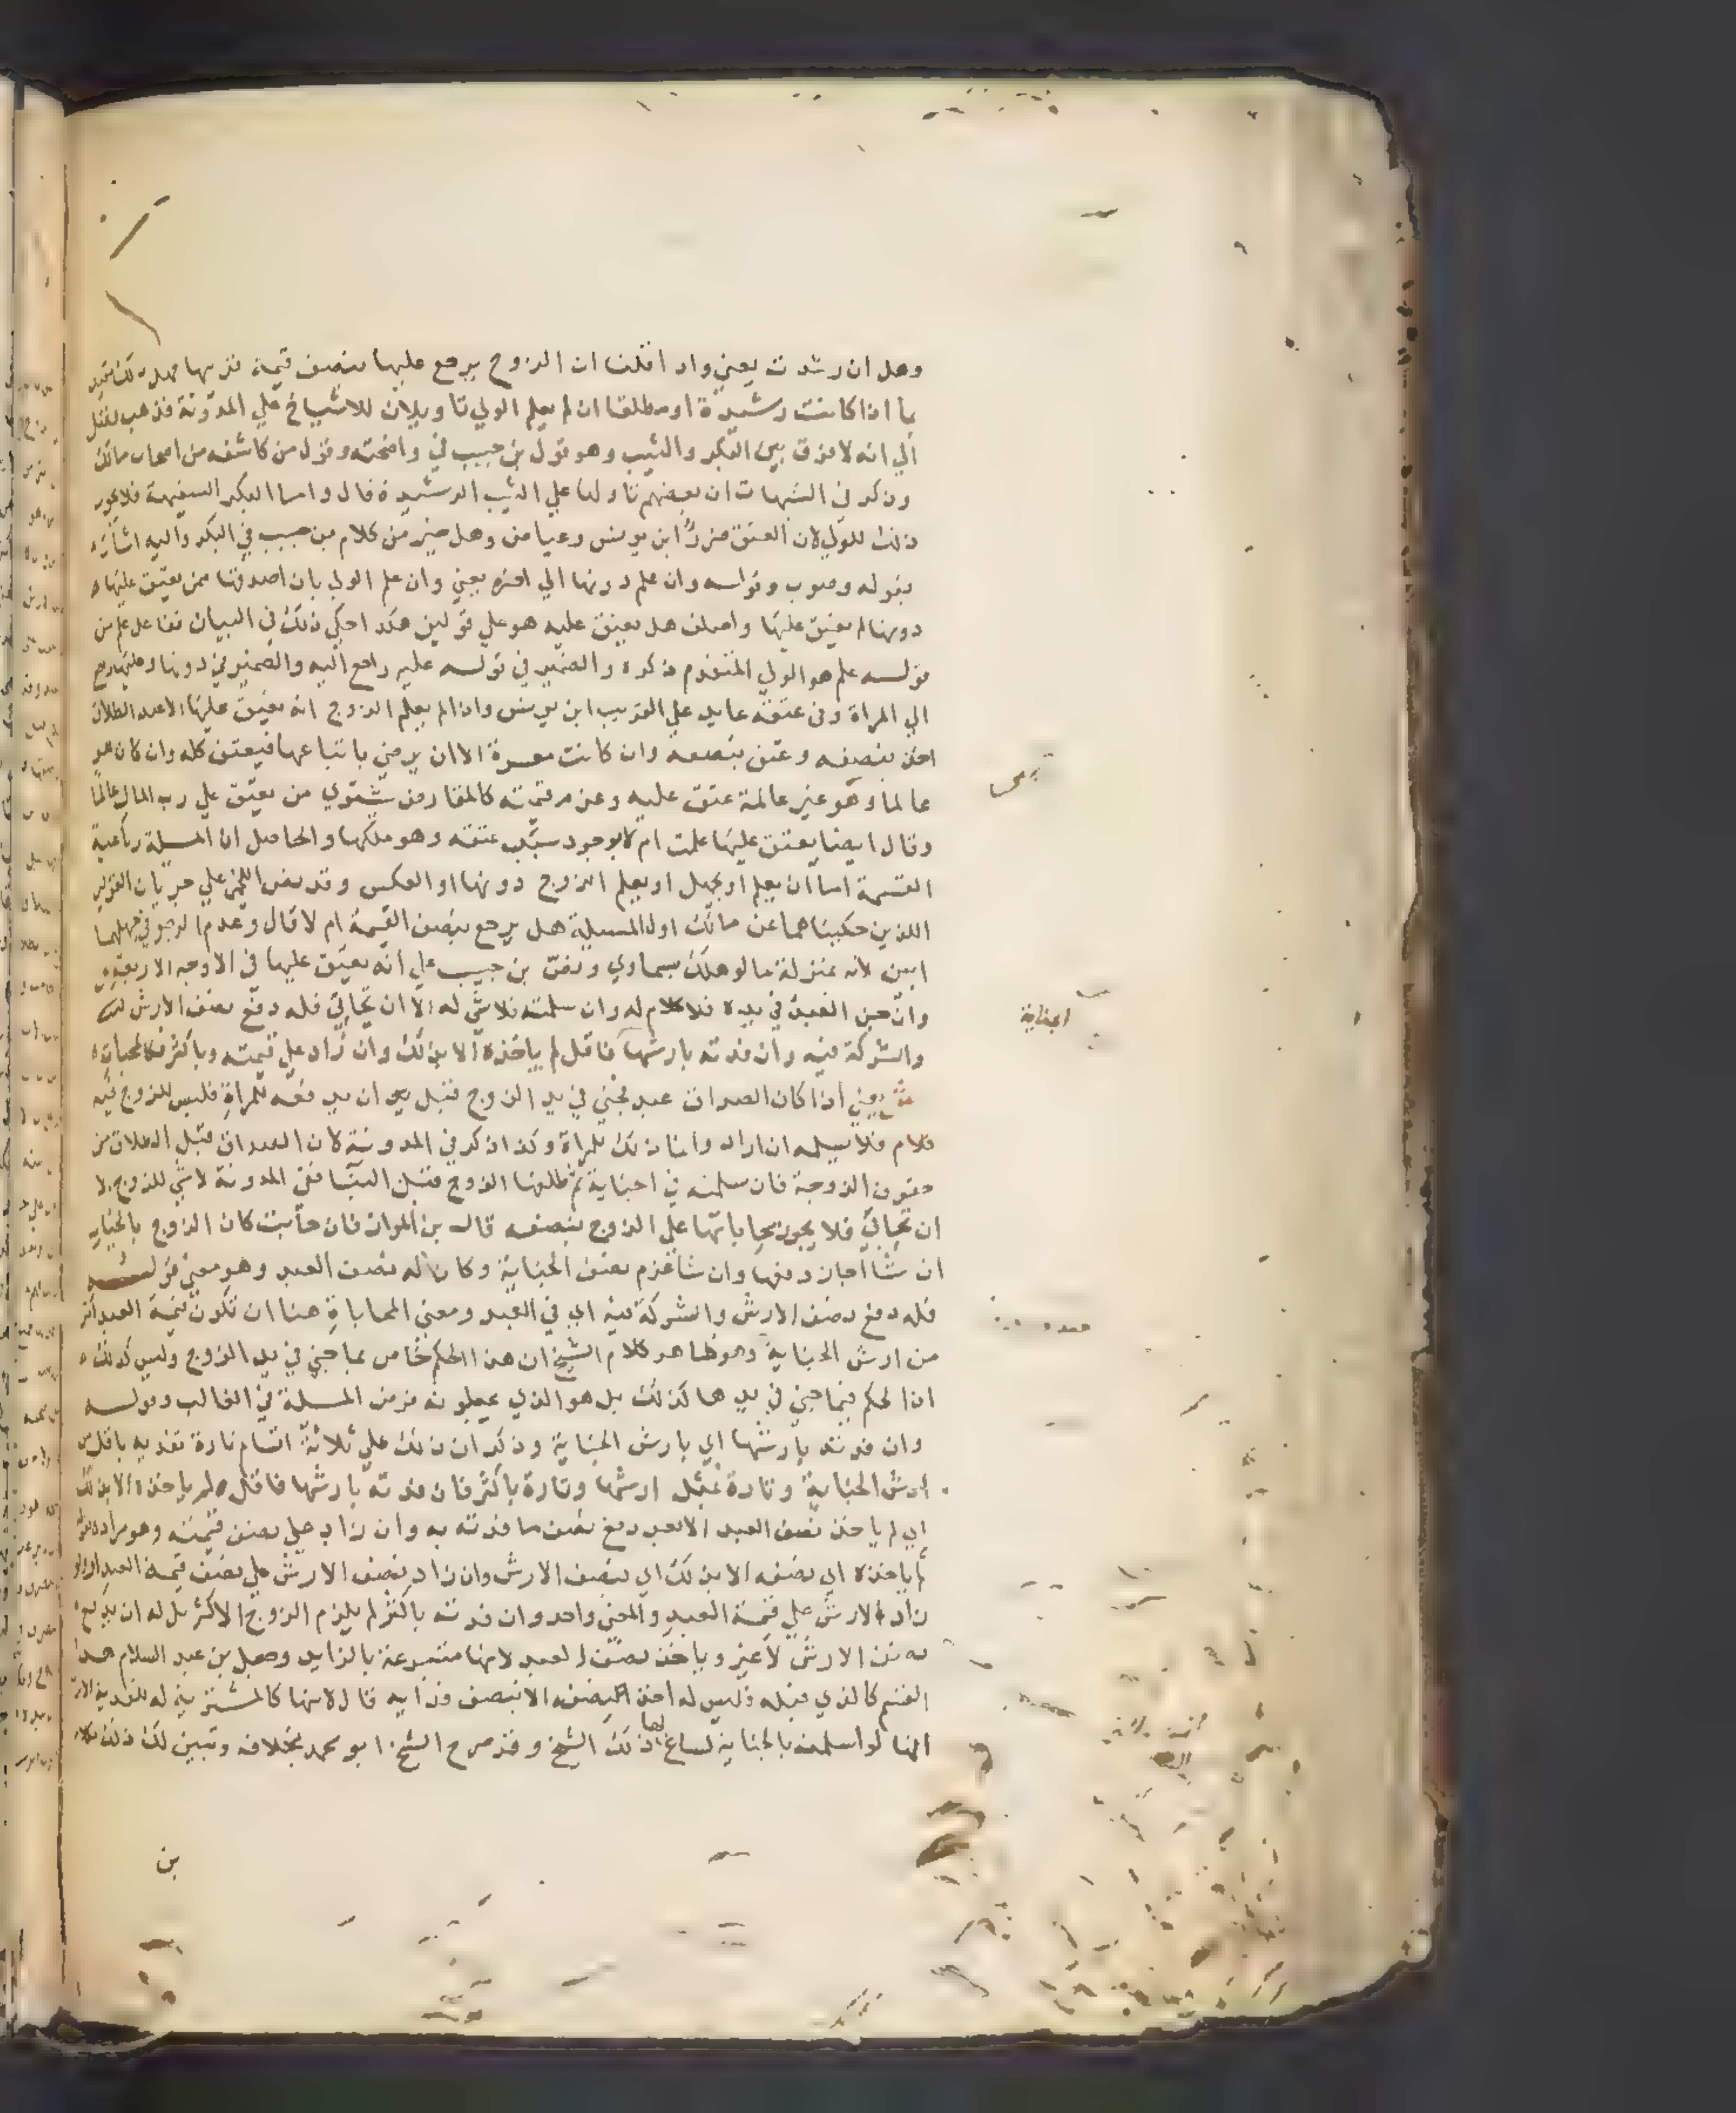 وهل ان رشدت يعني واذا قلنا ان الزوج يرجع عليها بنصف قيمة قريبها فهل ذلك مقيد
بما اذا كانت رشيدة او مطلقا ان لم يعلم الولي تاويلان للاشياخ علي المدونة فذهب فضل
الي انه لا فرق بين البكر والثيب وهو قول بن حبيب في واضحته وقول من كاشفه من اصحاب مالك
وذكر في التنبيهات ان بعضهم تاولها علي الثيب الرشيدة قال واما البكر السفيهة فلا يجوز
ذلك للولي لان العتق ضرر ابن يونس وعياض وهل خير من كلام بن حبيب في البكر واليه اشار
بقوله وصوب وقوله وان علم دونها الي اخره يعني وان علم الولي بان اصدقها من يعتق عليها
دونها لم يعتق عليها واختلف هل يعتق عليه هو علي قولين هكذا حكي ذلك في البيان ففاعل علم من
قوله علم هو الولي المتقدم ذكره والضمير في قوله عليه راجع اليه والضمير في دونها وعليها راجع
الي المراة وفي عتقه عايد علي القريب ابن يونس واذا لم يعلم الزوج انه يعتق عليها الا عند الطلاق
اخذ بنصفه وعتق نصفه وان كانت معسرة الا ان يرضي باتباعها فيعتق كله وان كان هو
عالما وهو غير عالمة عتق عليه وغرم قيمته كالمقارض يشتري من يعتق علي رب المال عالما
وقال ايضا يعتق عليها علمت ام لا بوجود سبب عتقه وهو ملكها والحاصل ان المسلة رباعية
القسمة اما ان يعلم او يجهل او يعلم الزوج دونها او العكس وقد نص اللخمي علي جريان القولين
اللذين حكيناهما عن مالك اول المسيلة هل يرجع بنصف القيمة ام لا قال وعدم الرجوع في جهلهما
ابين لانه بمنزلة ما لو هلك بسماوي ونص بن حبيب علي انه يعتق عليها في الاوجه الاربعة
وان جني العبد في يده فلا كلام له وان سلمته فلا شي له الا ان تحابي فله دفع نصف الارش
والشركة فيه وان فدته بارشها فاقل لم ياخذه الا بذلك وان زاد علي قيمته وباكثر فكالمحاباة
ش يعني اذا كان الصداق عبد فجني في يد الزوج قبل ان يدفعه للمراة فليس للزوج فيه
كلام فلا يسلمه ان اراد وانما ذلك للمراة وكذا ذكر في المدونة لان العبد ان قبل الطلاق من
حقوق الزوجة فان سلمته في الجناية ثم طلقها الزوج قبل البنا ففي المدونة لا شي للزوج الا
ان تحابي فلا يجوز محاباتها علي الزوج بنصفه قال بن المواز فان حابت كان الزوج بالخيار
ان شا اجاز دفعها وان شا غرم نصف الجناية وكان له نصف العبد وهو معني قوله
فله دفع نصف الارش والشركة فيه اي في العبد ومعني المحاباة هنا ان تكون قيمة العبد اكثر
من ارش الجناية وهو ظاهر كلام الشيخ ان هذا الحكم خاص بما جني في يد الزوج وليس كذلك
اذ الحكم فيما جني في يدها كذلك بل هو الذي يحملونه فرض المسلة في الغالب وقوله
وان فدته بارشها اي بارش الجناية وذكر ان ذلك علي ثلاثة اقسام تارة تفديه باقل من
ارش الجناية وتارة بمثل ارشها وتارة باكثر فان فدته بارشها فاقل لم ياخذه الا بذلك
اي لم ياخذ نصف العبد الا بعد دفع نصف ما فدته به وان زاد علي نصف قيمته وهو مراده بقوله
لم ياخذه اي نصفه الا بذلك اي بنصف الارش وان زاد نصف الارش علي نصف قيمة العبد او لو
زاد الارش علي قيمة العبد والمعني واحد وان فدته باكثر لم يلزم الزوج الاكثر بل له ان يدفع
نصف الارش لا غير وياخذ نصف العبد لانها متبرعة بالزايد وجعل بن عبد السلام هذا
القسم كالذي قبله فليس له اخذ النصف الا بنصف فدايه قال لانها كالمشترية له للفدية
انها لو اسلمته بالجناية لساغ لها ذلك الشيخ وقد صرح الشيخ ابو محمد بخلافه وتبين لك ذلك
بن
الجناية